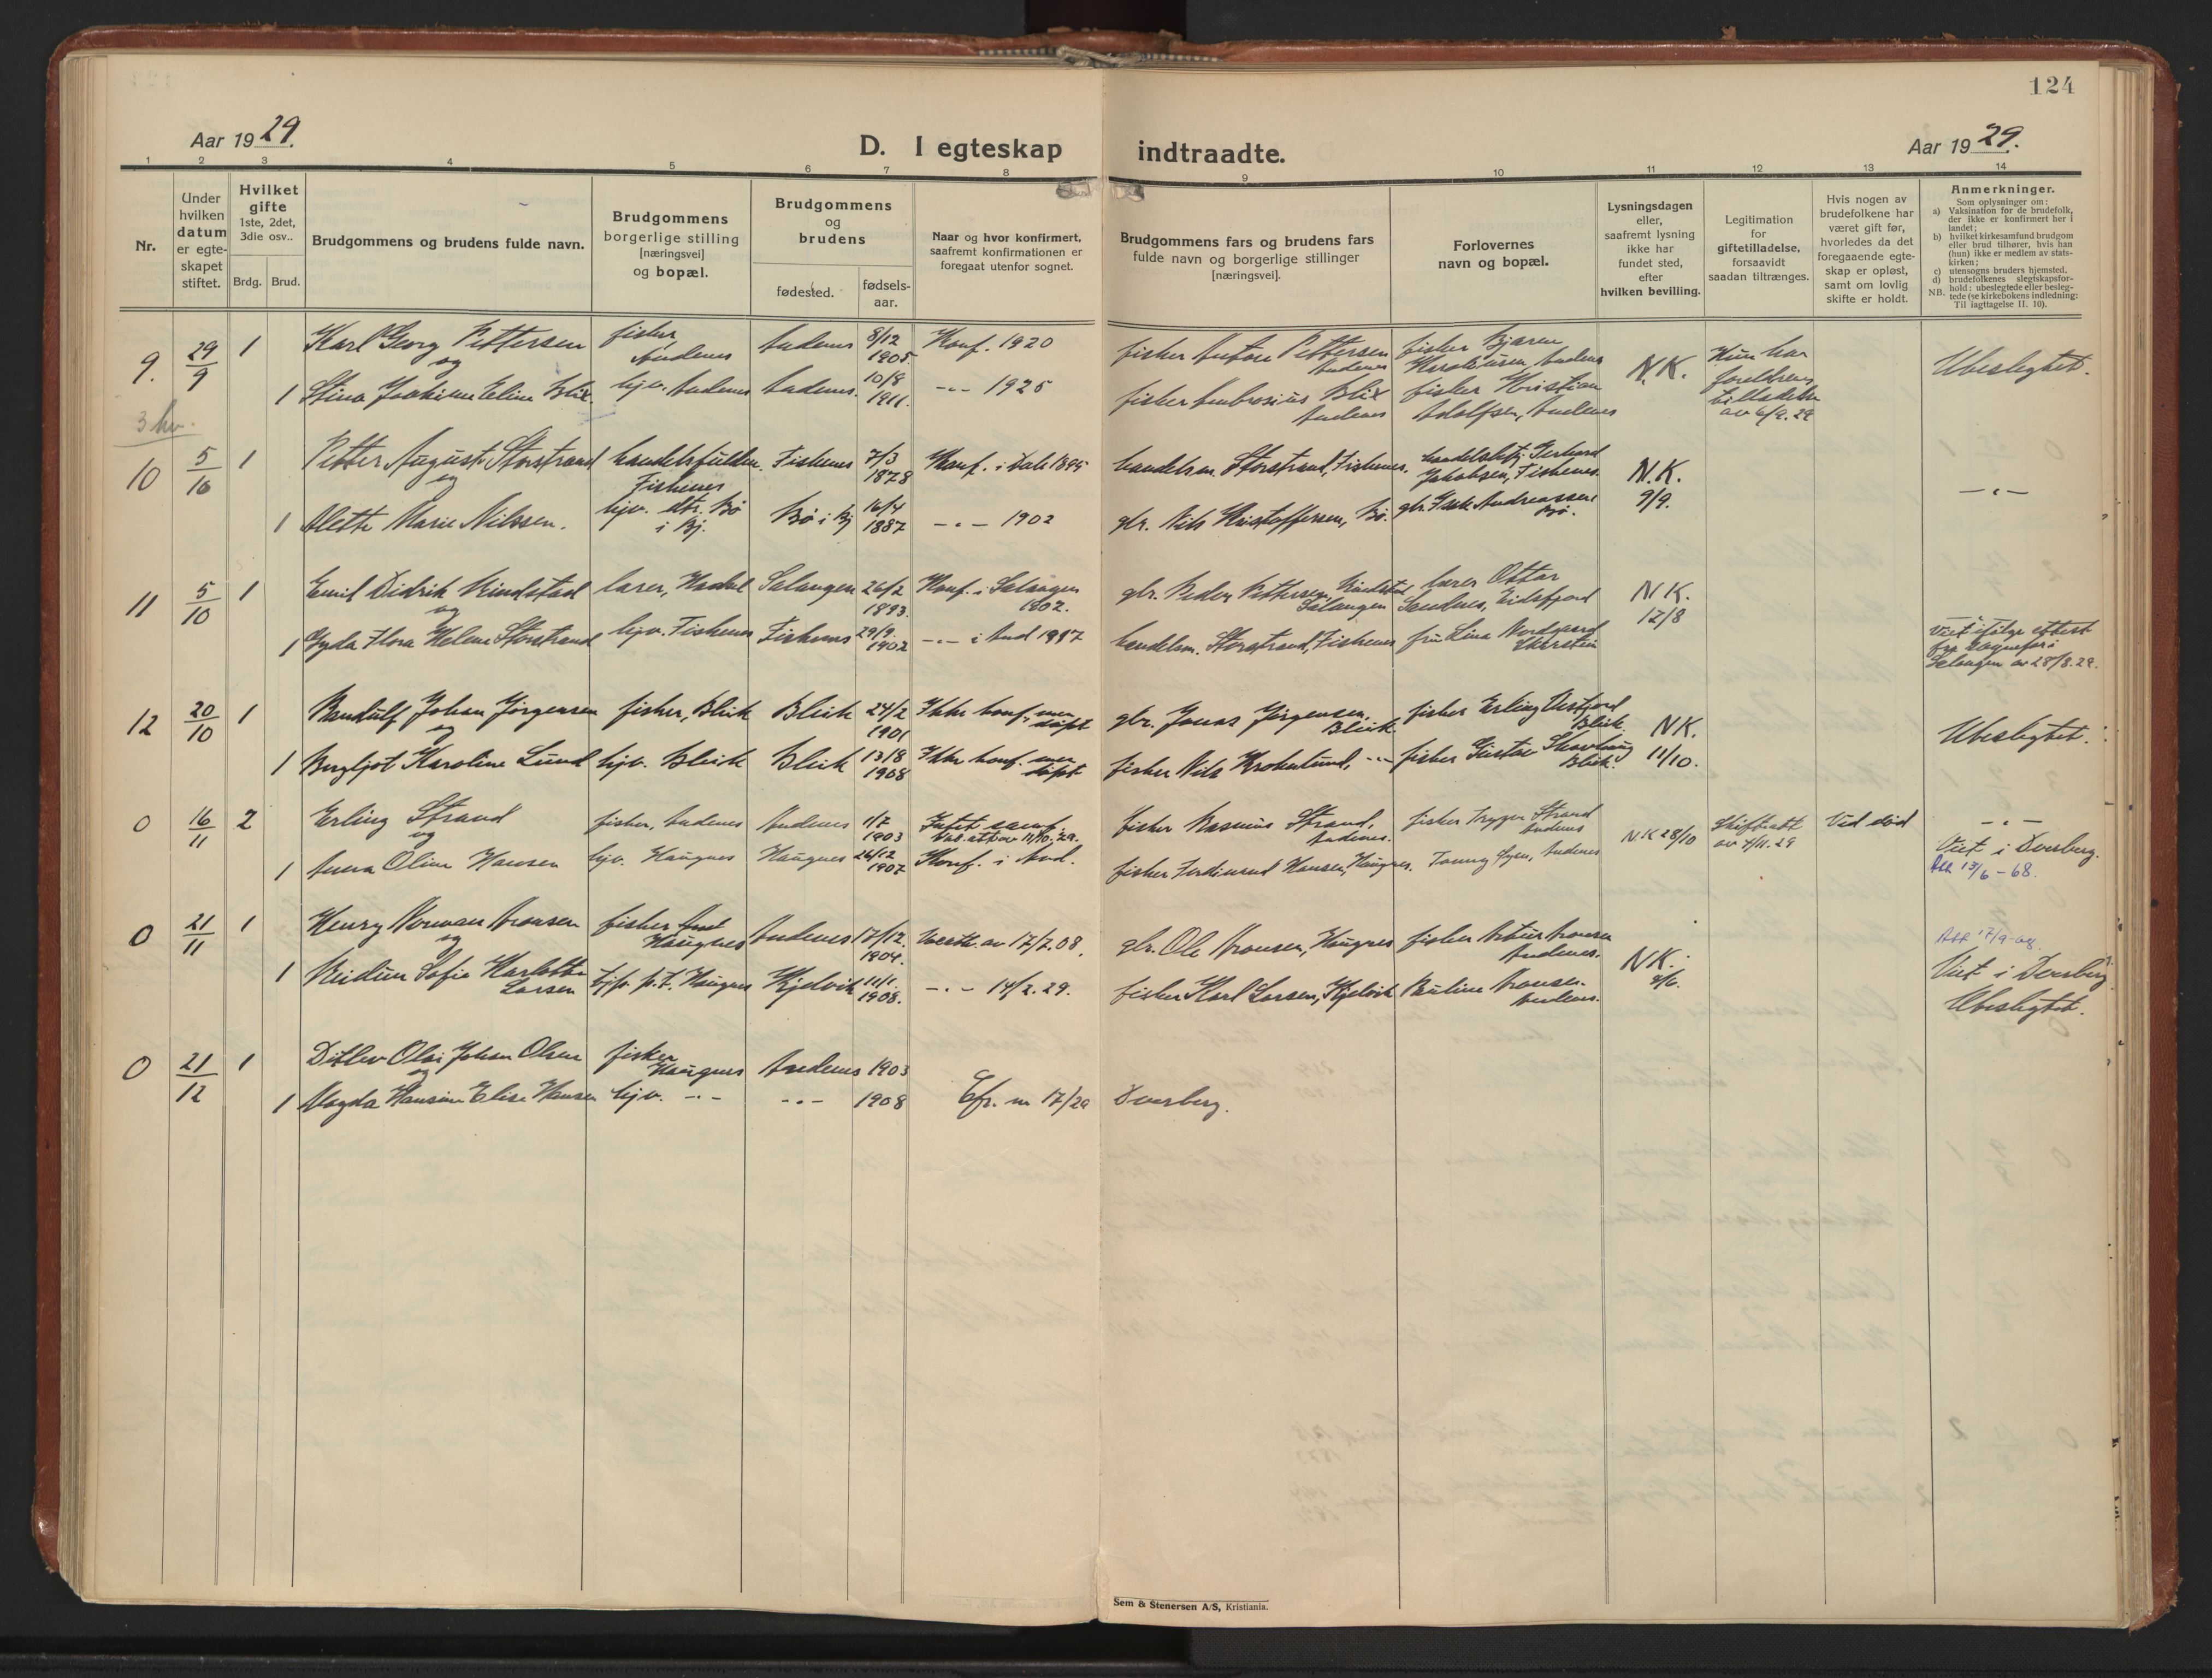 124
Aar 1929.
D. I egteskap
indtraadte.
Aar 1929.
1 2 3 4 5 6 7 8 9 10 11 12 13 14
Nr.
Under
hvilken
datum
er egte-
skapet
stiftet.
Hvilket
gifte
1ste, 2det,
3die osv..
Brdg. Brud.
Brudgommens og brudens fulde navn.
Brudgommens
borgerlige stilling
[næringsvei]
og bopæl.
Brudgommens
og
brudens
fødested.
fødsels-
aar.
Naar og hvor konfirmert,
saafremt konfirmationen er
foregaat utenfor sognet.
Brudgommens fars og brudens fars
fulde navn og borgerlige stillinger
[næringsvei].
Forlovernes
navn og bopæl.
Lysningsdagen
eller,
saafremt lysning
ikke har
fundet sted,
efter
hvilken bevilling.
Legitimation
for
giftetilladelse,
forsaavidt
saadan tiltrænges.
Hvis nogen av
brudefolkene har
været gift før,
hvorledes da det
foregaaende egte-
skap er opløst,
samt om lovlig
skifte er holdt.
Anmerkninger.
Som oplysninger om:
a) Vaksination for de brudefolk,
der ikke er konfirmert her i
landet;
b) hvilket kirkesamfund brudgom
eller brud tilhører, hvis han
(hun) ikke er medlem av stats-
kirken;
c) utensogns bruders hjemsted.
d) brudefolkenes slegtskapsfor-
hold: ubeslegtede eller besleg-
tede (se kirkebokens indledning:
NB. Til iagttagelse II. 10).
9. 29/9 1 Karl Georg Pettersen fisher, Andenes Andenes 8/12 1905 Konf. 1920 fisher Anton Pettersen Andenes fisher Bjarne Andenes N.K. Hun har foreldrenes tilladelse av 6/9.29 Ubeslegtet.
og
1 Stina Joakime Eline Blix hjv. Andenes Andenes. 10/8 1911. -"- 1925 fisher Ambrosius Blix Andenes fisher Kristian Adolfsen, Andenes
3 hv.
10 5/10 1 Petter August Storstrand handelsfuldm. Fiskenes Fiskenes 7/3 1878 Konf. i Dale 1895 handelsm. Storstrand, Fiskenes. handelsbetj. Gerhard Jakobsen, Fiskenes. N.K. 9/9. -"-
og
1 Aleth Marie Nilssen. hjv. Bø i Bj. Bø i Bj 16/4 1887 -"- 1902 gbr. Nils Kristoffersen, Bø. gbr. Isak Andreassen Bø.
11 5/10 1 Emil Didrik Rindstad lærer, Salangen 26/2 1893 Konf. i Salangen gbr. Peder Pettersen Rindstad, Salangen lærer Ottar Sandnes, Eidsfjord N.K. 12/8
og
1 Gyda Flora Helene Storstrand hjv. Fiskenes Fiskenes 29/9 1902 -"- i And 1917 handelsm. Storstrand, Fiskenes fru Lina Nordgaard Viet ifølge attest fra sogneprest i Salangen av 28/8.29.
12 20/10 1 Randulf Johan Jørgensen fisher, Bleik Bleik 24/2 1901 Ikke konf., men døpt gbr. Jonas Jørgensen, Bleik fisher Erling Vestfjord Bleik N.K. 11/10. Ubeslegtet.
og
1 Bergljot Karoline Lund hjv. Bleik Bleik 13/8 1908 Ikke konf. men døpt fisher Nils Lund, -"- fisher Gustav Bleik.
0 16/11 2 Erling Strand fisher, Andenes Andenes 1/7 1903 fisher Rasmus Strand, Andenes. fisher Trygve Strand Andenes N.K. 28/10 Skifteatt. av 4/11.29 Ved død -"-
og
1 Anna Oline Hansen hjv. Haugnes Haugnes 26/12 1907 Konf. i And. fisher Ferdinand Hansen, Haugnes. Andenes Viet i Dverberg.
Att 13/6-68.
0 21/11 1 Henry Norman Aronsen fisher Haugnes Andenes 17/12. 1904. Vacatt. av 17/7.08. gbr. Ole Aronsen, Haugnes fisher Artur Aronsen Andenes. N.K. 8/6. Viet i Dverberg
og
1 Reidun Sofie Karlotte Larsen hjv. p.t. Haugnes Kjelvik 11/1. 1908. -"- 14/2.29. fisher Karl Larsen, Kjelvik Pauline Aronsen Andenes. Ubeslegtet.
0 21/12 1 Ditlev Olai Johan Olsen fisker Haugnes Andenes 1903
og
1 Magda Hansine Elise Hansen hjv. -"- -"- 1908 Cfr. nr 17/29 Dverberg.
Sem & Stenersen A/S, Kristiania.